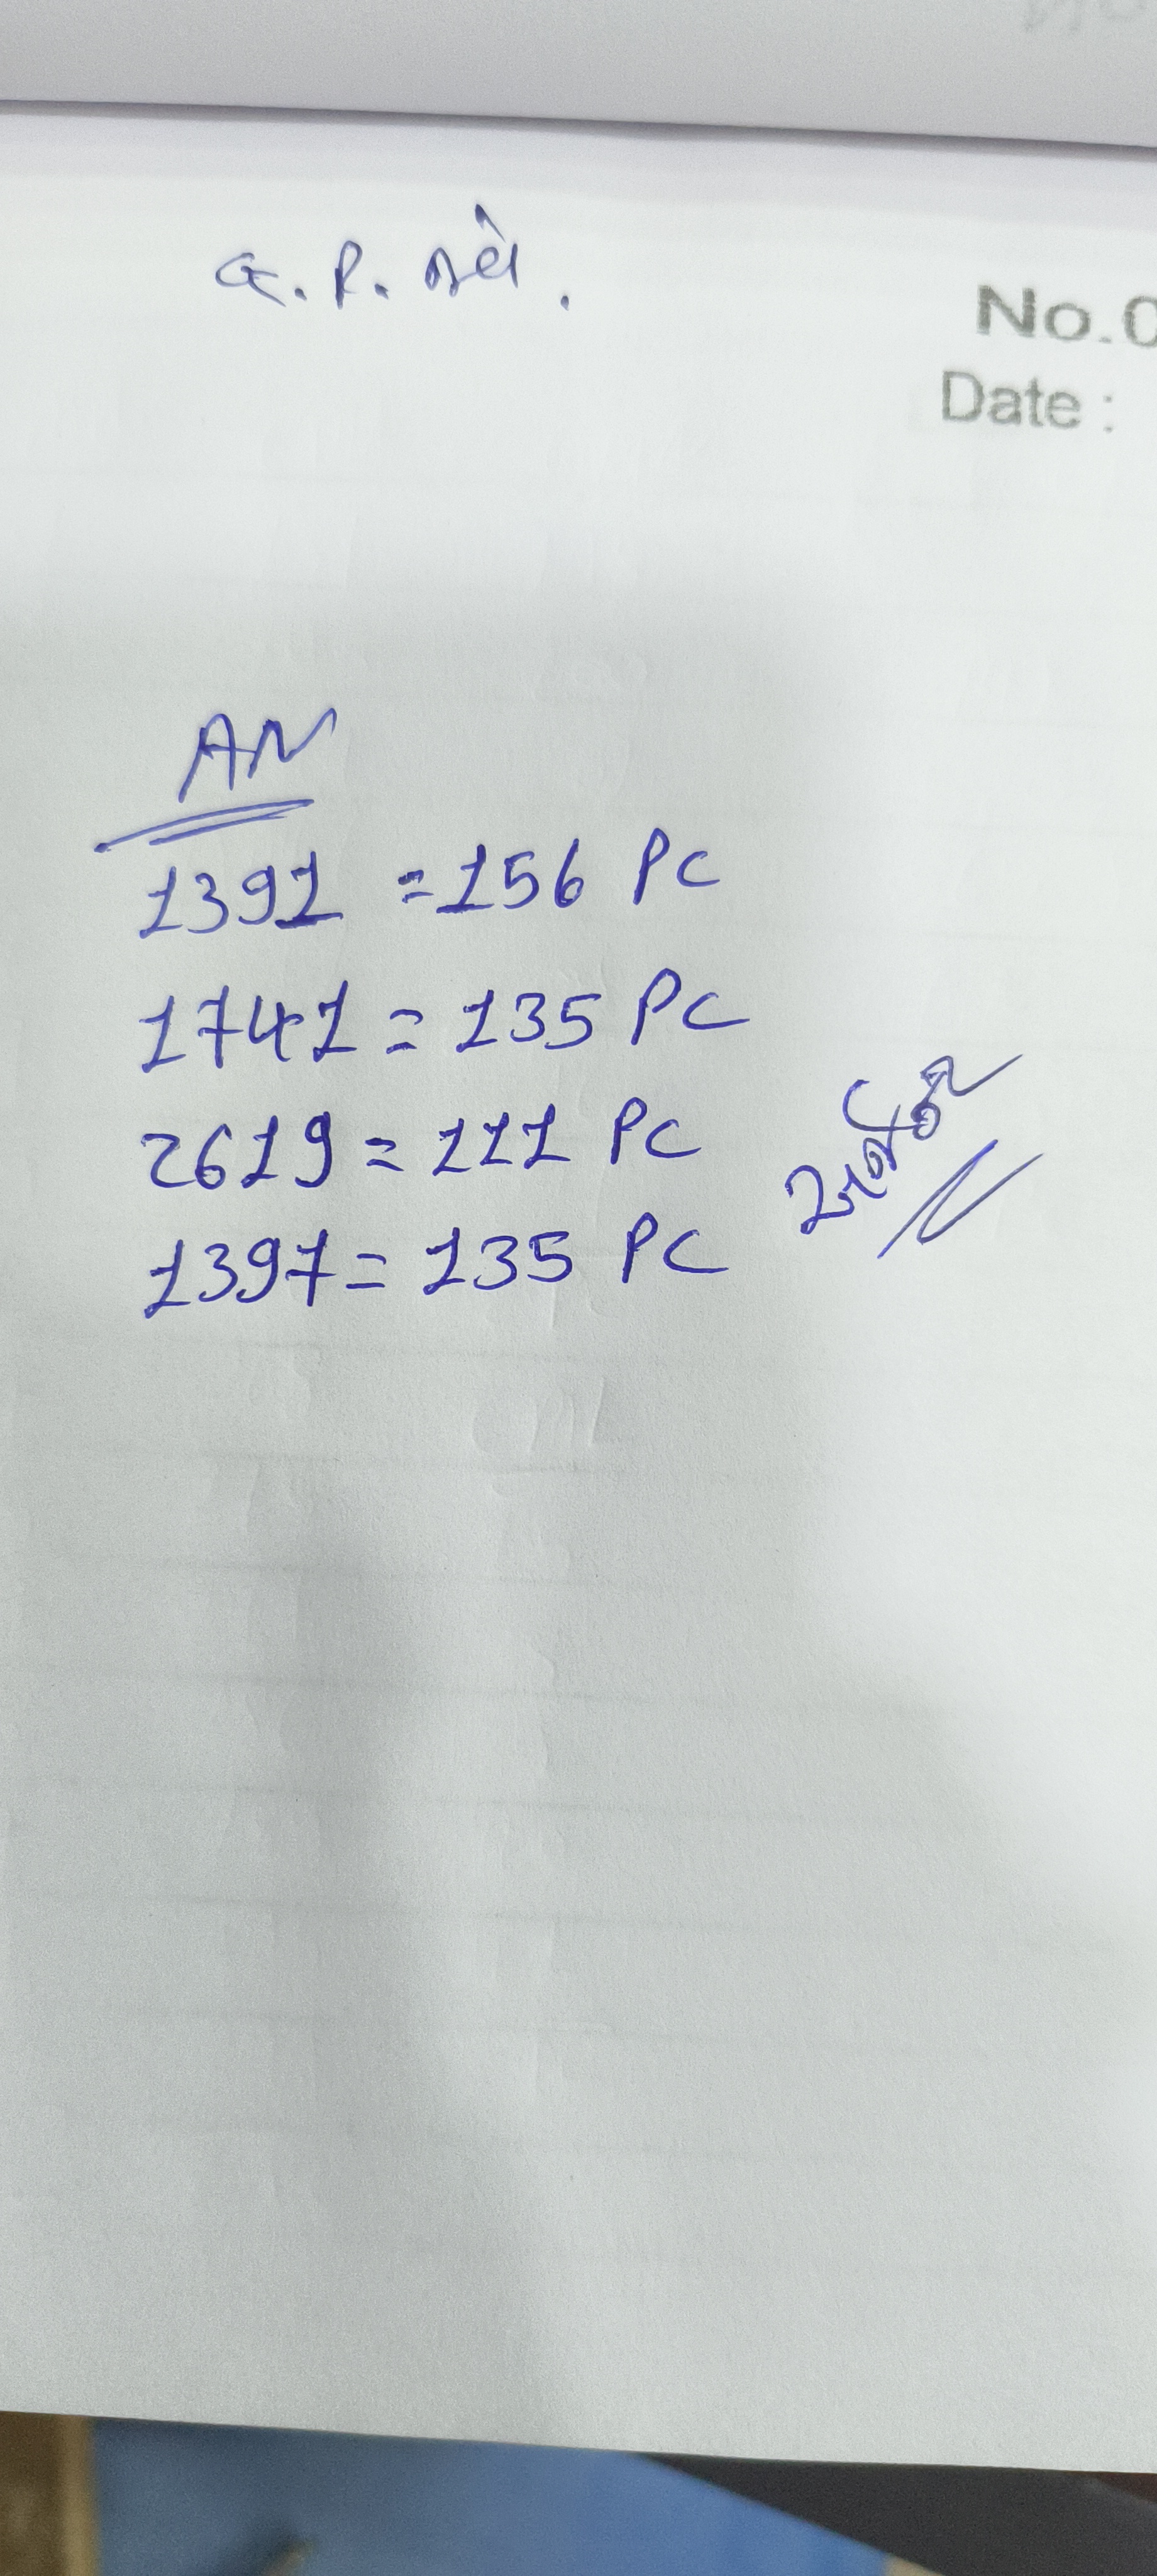 G. P. 
No.0
Date :
AN
1391 = 156 PC
1741 = 135 PC
2619 = 111 PC
1397 = 135 PC